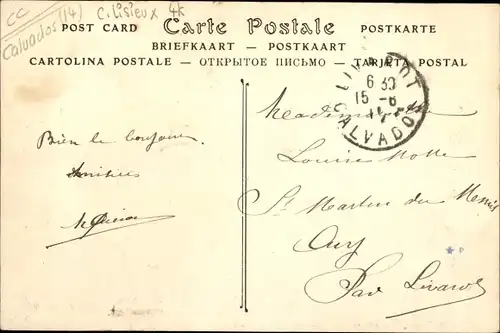 CC
Calvados (14) C. Lisieux 4k
Carte Postale
POST CARD POSTKARTE
BRIEFKAART — POSTKAART
CARTOLINA POSTALE — ОТКРЫТОЕ ПИСЬМО — TARJETA POSTAL
LIVAROT
6 30
15 - 8
CALVADOS
Bien le bonjour
Amitiés
Mademoiselle
Louise
St Martin du Mesnil
Oury
Par Livarot